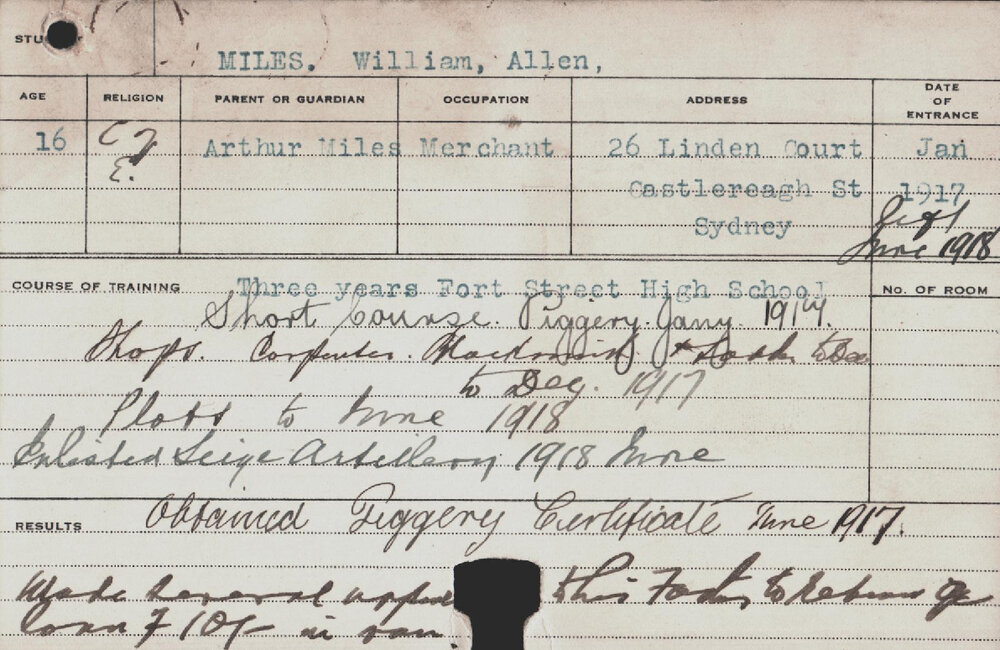 STU
MILES. William, Allen,
AGE RELIGION PARENT OR GUARDIAN OCCUPATION ADDRESS DATE OF ENTRANCE
16 C of E. Arthur Miles Merchant 26 Linden Court Jan
Castlereagh St 1917
Sydney Left
June 1918
COURSE OF TRAINING Three years Fort Street High School No. OF ROOM
Short Course. Piggery. Jany. 1917.
Shops. Carpenter. Blacksmith &
to Dec. 1917
Plots to June 1918
Enlisted Seige Artillery 1918 June
RESULTS Obtained Piggery Certificate June 1917.
Made several to his Father to Return of
loan of 10/- in vain.